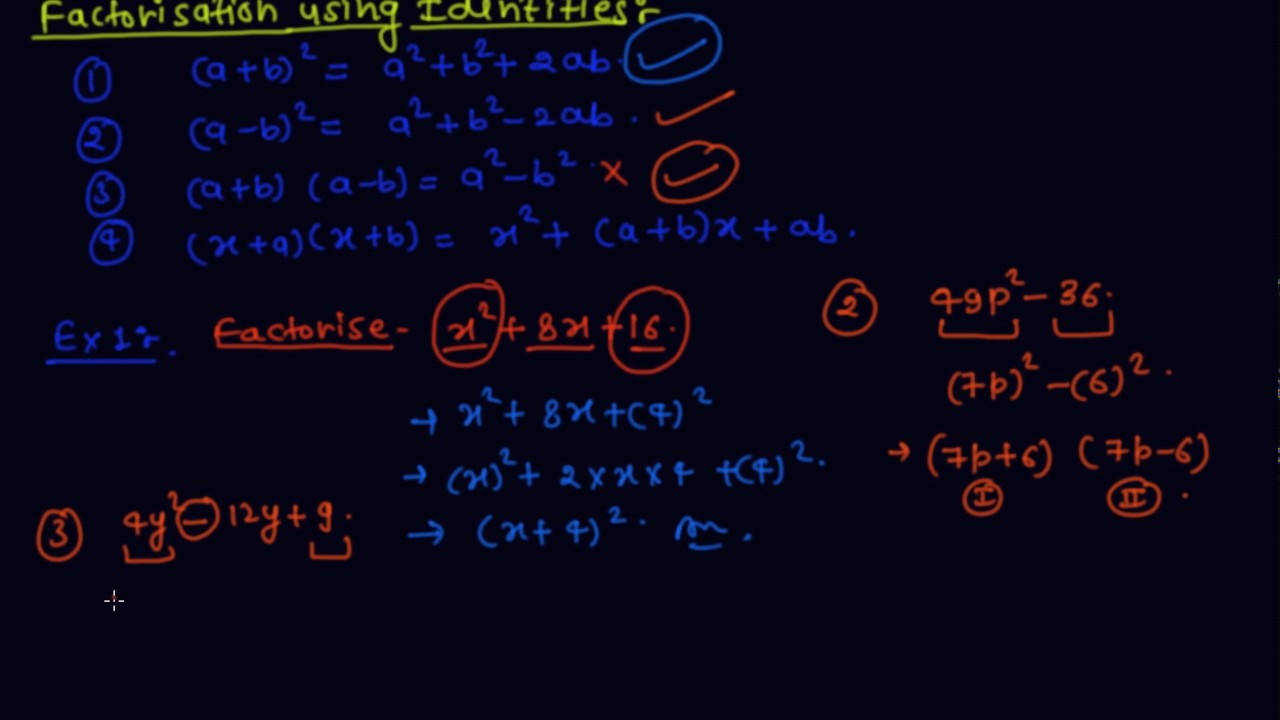 Factorisation using Identities:-
① (a+b)² = a²+b²+2ab.
② (a-b)² = a²+b²-2ab.
③ (a+b) (a-b) = a²-b².
④ (x+a)(x+b) = x²+ (a+b)x + ab.
Ex1:-. Factorise- x²+ 8x+16.
→ x²+ 8x+(4)²
→ (x)²+ 2×x×4 +(4)².
→ (x+4)².
② 49p²-36.
(7p)²-(6)².
→ (7p+6) (7p-6)
I II.
③ 4y²-12y+9.